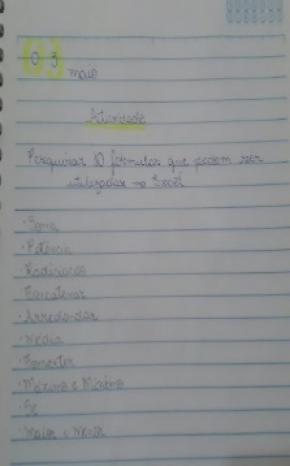 03 maio
Atividade
Pesquisar 10 fórmulas que podem ser
utilizadas no Excel
· Soma
· Potência
· Concatenar
· Arredondar
· Média
· Somente
· Máximo e Mínimo
· Se
· Maior e Menor